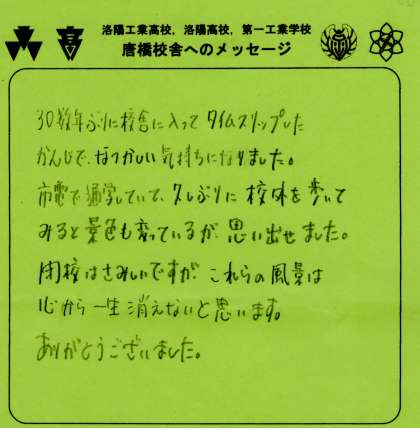 洛陽工業高校，洛陽高校，第一工業学校
唐橋校舎へのメッセージ
高
30数年ぶりに校舎に入って タイムスリップした
かんじで、なつかしい気持ちになりました。
市電で通学していて、久しぶりに 校外を歩いて
みると景色も変っているが 思い出せました。
閉校はさみしいですが これらの風景は
心から一生消えないと思います。
ありがとうございました。